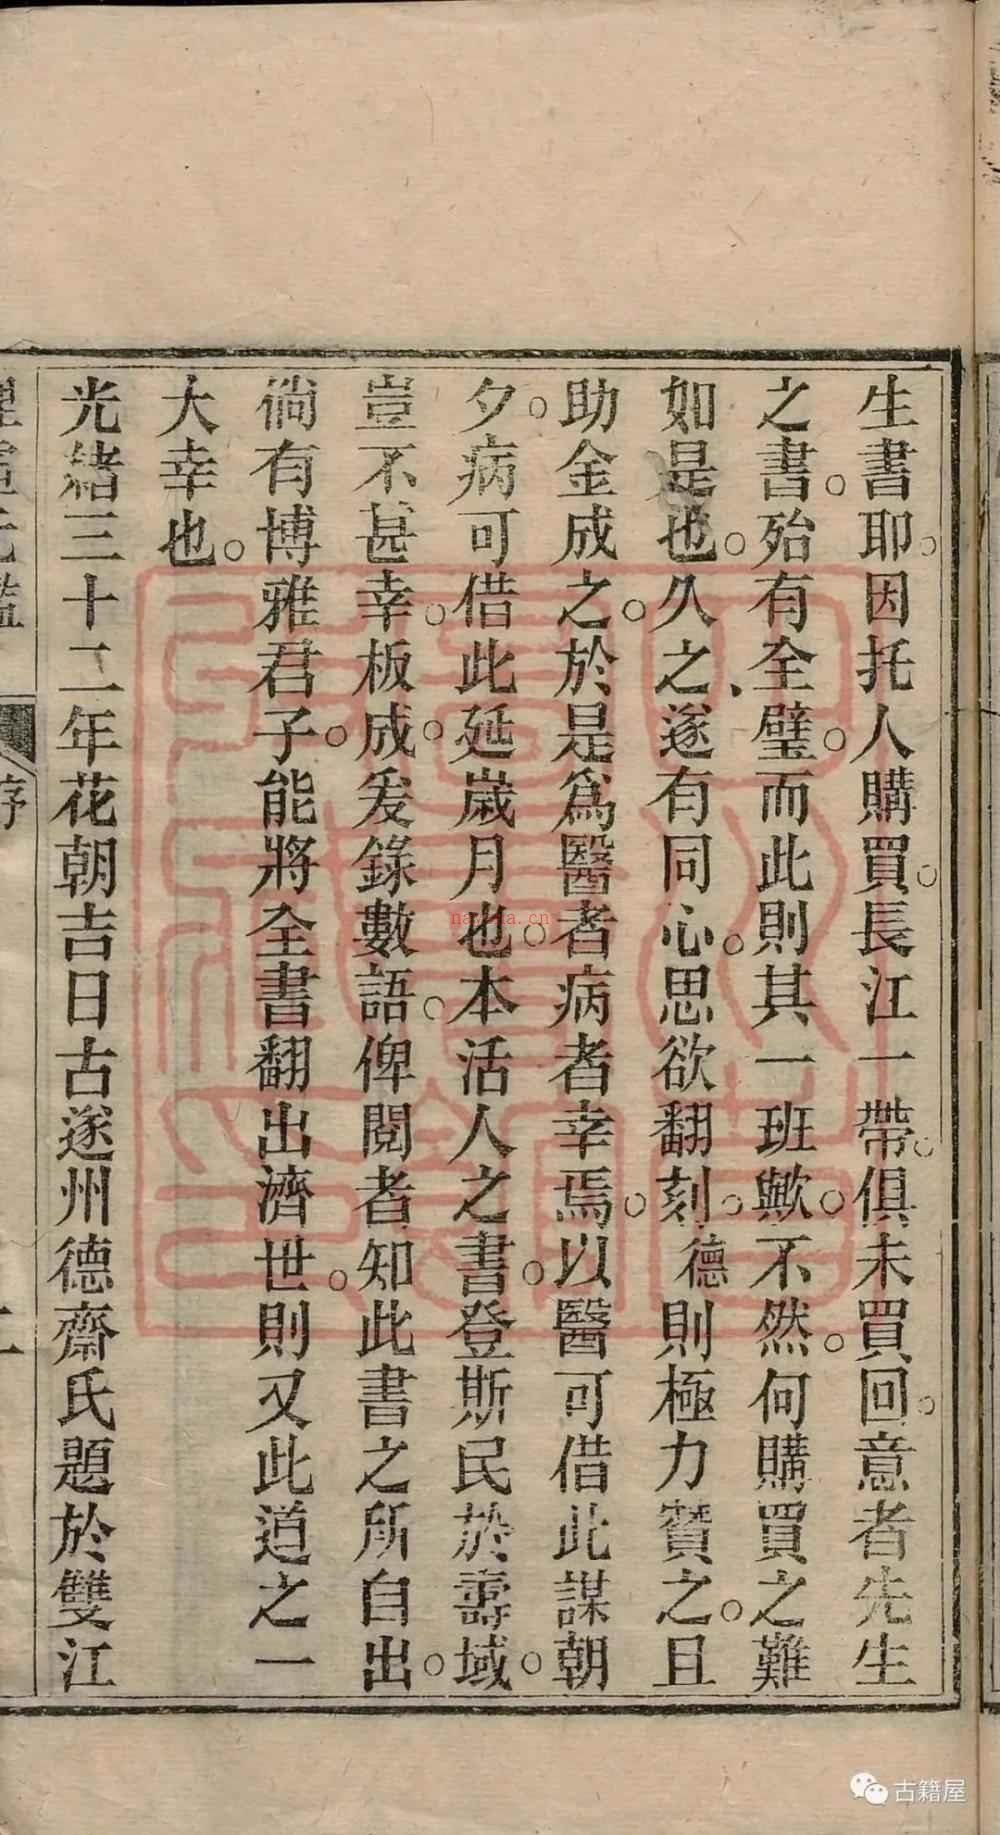 生書耶。因托人購買。長江一帶。俱未買回。意者先生
之書。殆有全璧。而此則其一班歟。不然。何購買之難
如是也。久之、遂有同心。思欲翻刻。德則極力贊之。且
助金成之。於是為醫者病者幸焉。以醫可借此謀朝
夕。病可借此延歲月也。本活人之書。登斯民於壽域。
豈不甚幸。板成。爰錄數語。俾閱者知此書之所自出。
倘有博雅君子。能將全書翻出濟世。則又此道之一
大幸也。
光緒三十二年花朝吉日古遂州德齋氏題於雙江
序
二
naxixia.cn
古籍屋